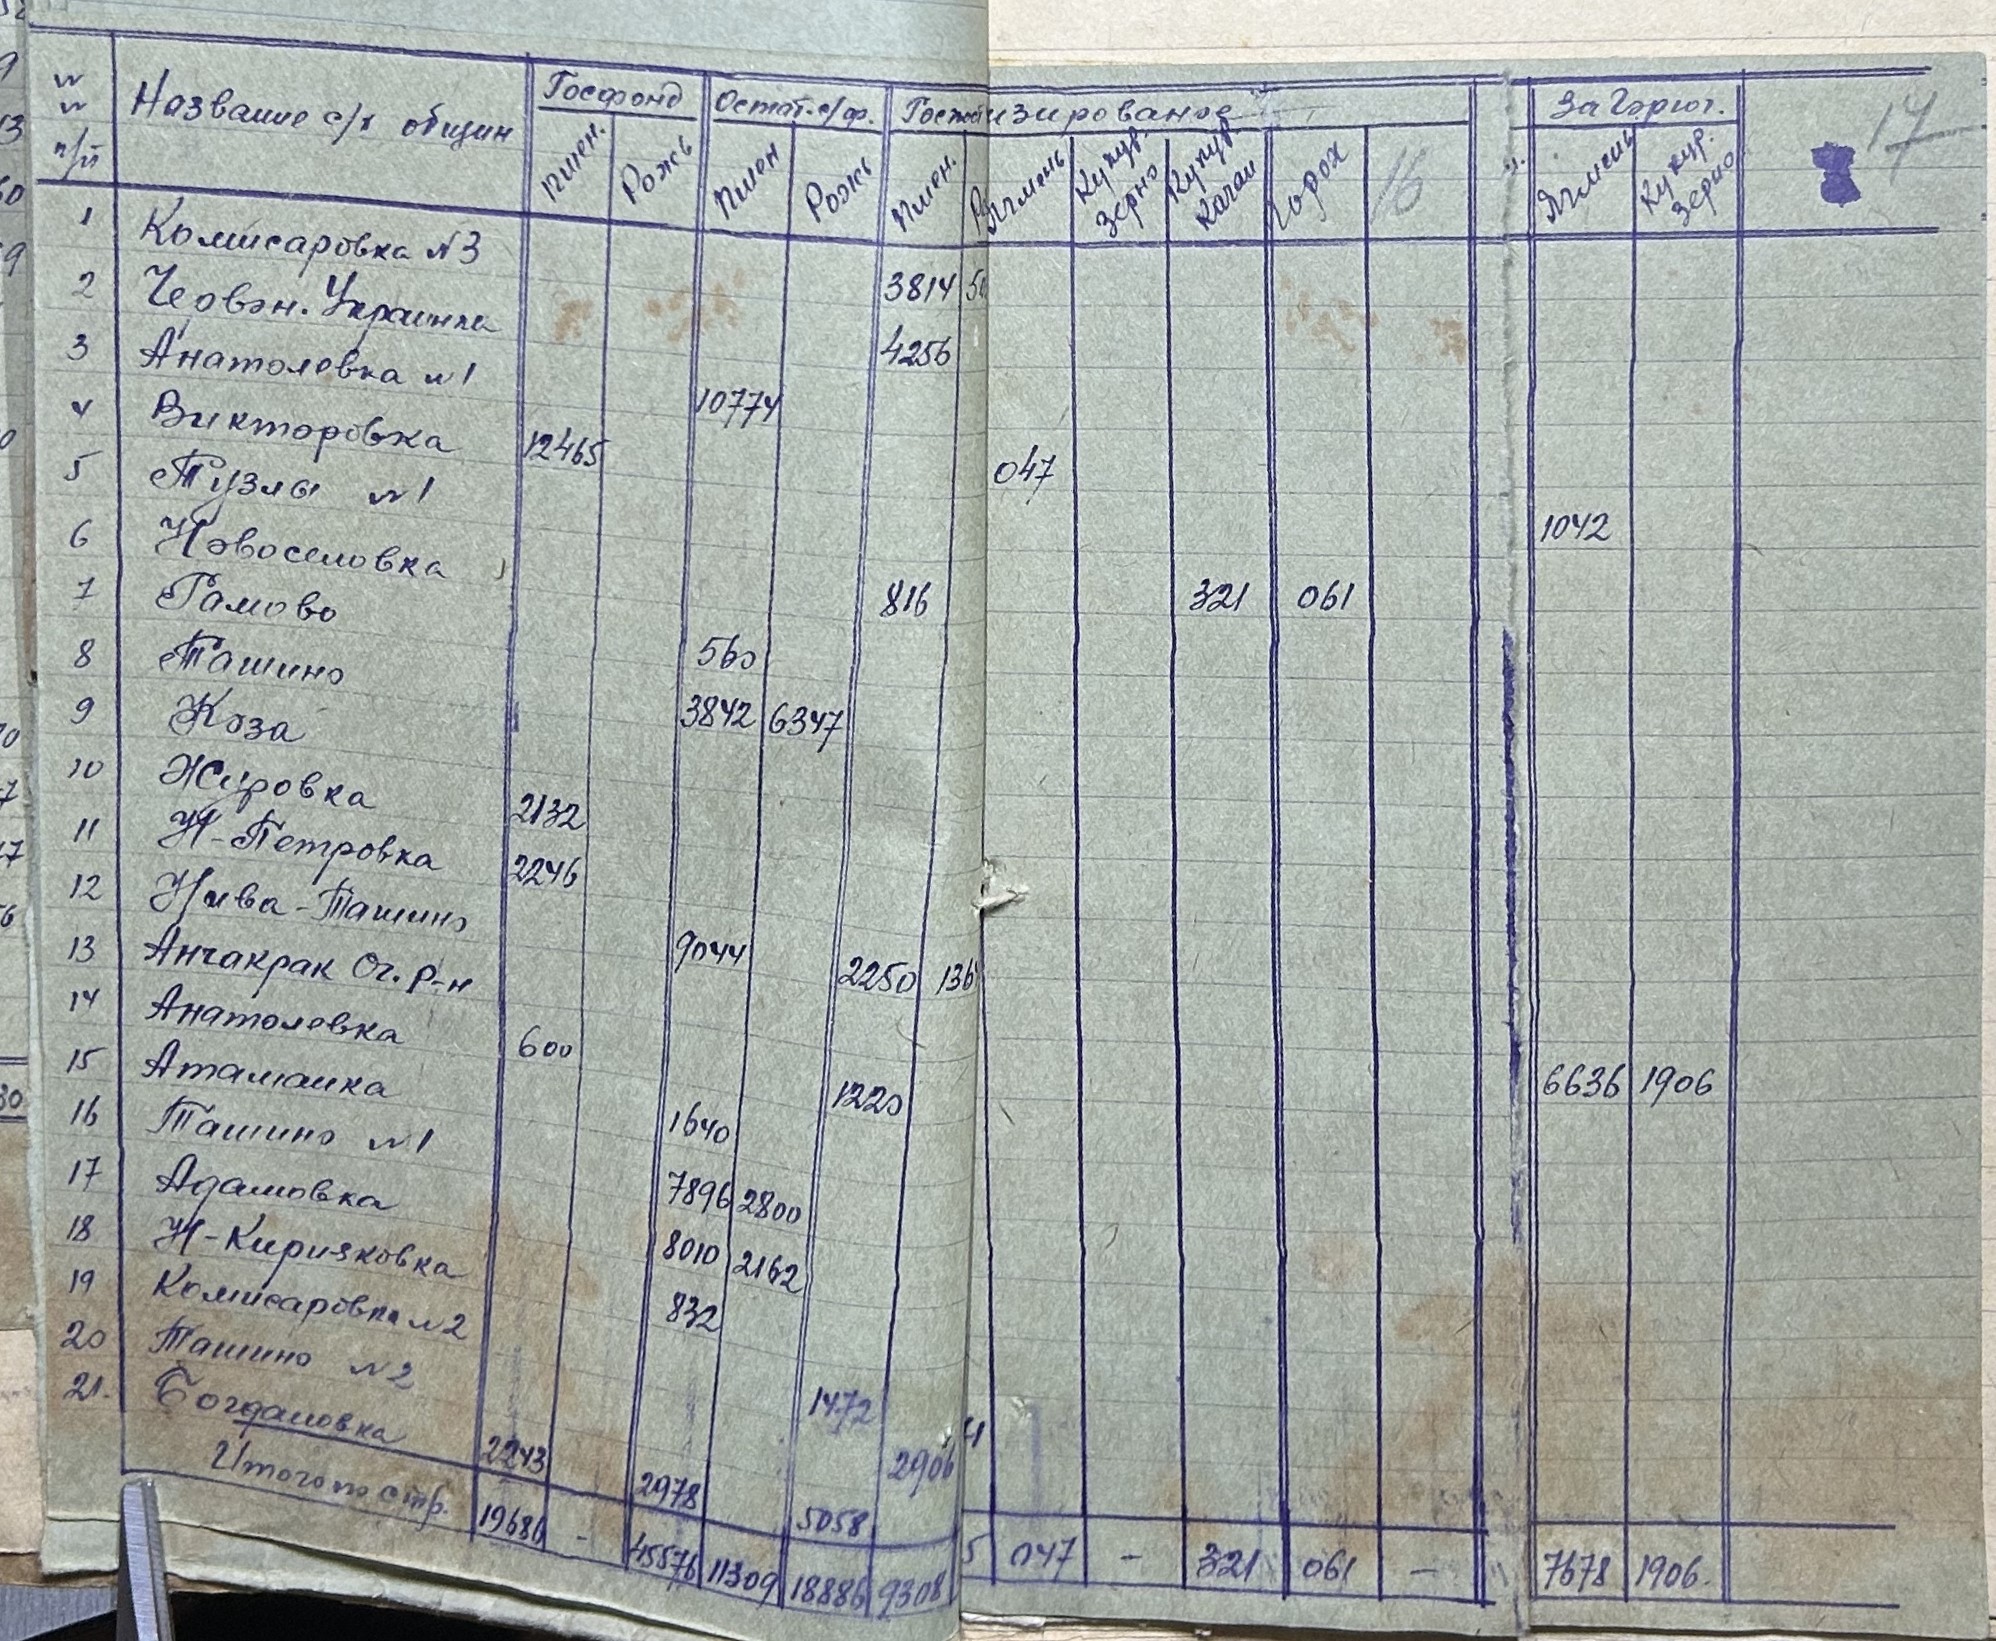 № № п/п Название с/х общин Госфонд Остат. с/ф. Гост изированое Загэрют. 17
Пшен. Рожь Пшен Рожь Пшен. Ячмень Кукур. Зерно Кукур. Качан Горох 16 Ячмень Кукур. Зерно
1 Комисаровка №3 3814 50
2 Червон. Украинка 4256
3 Анатолевка №1 10774
4 Викторовка 12465 047
5 Тузлы №1 1042
6 Новоселовка 816 321 061
7 Гамово 560
8 Ташино 3842 6347
9 Коза
10 Жировка 2132
11 Н-Петровка 2246
12 Нива-Ташино 9044
13 Анчакрак Оч. р-н 2250 136
14 Анатолевка 600 6636 1906
15 Атаманка 1220
16 Ташино №1 1640
17 Адамовка 7896 2800
18 Н-Кирияковка 8010 2162
19 Комисаровка №2 832
20 Ташино №2 1472
21. Богдановка 2243 2978 5058 2906
Итого по стр. 19686 - 45576 11309 18886 9308 5 047 - 321 061 - 7678 1906.